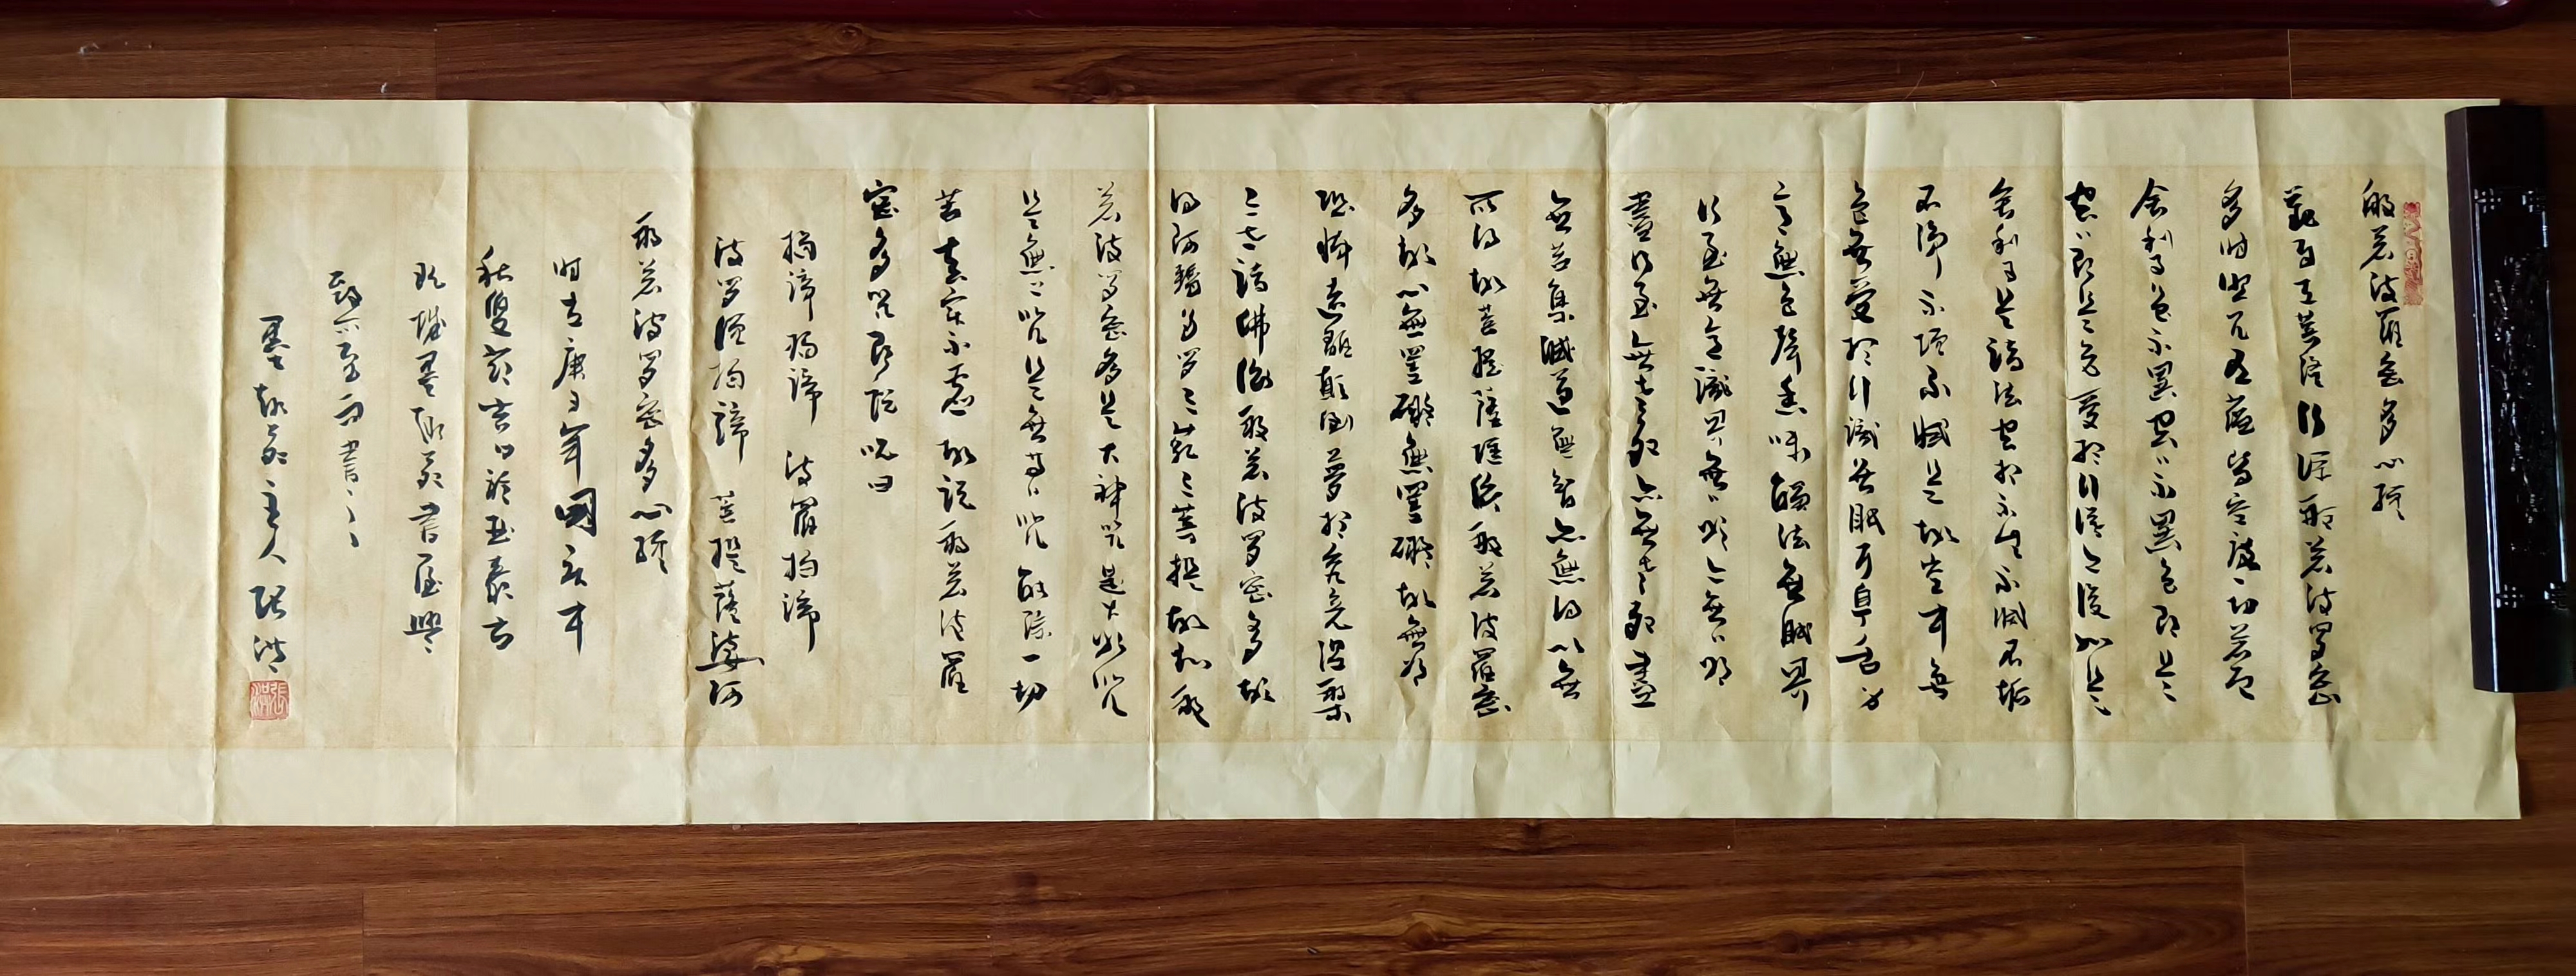 般若波羅蜜多心經
觀自在菩薩行深般若波羅蜜
多時照見五蘊皆空度一切苦厄
舍利子色不異空〻不異色色即是
空〻即是色受想行識亦復如是
舍利子是諸法空相不生不滅不垢
不淨不增不減是故空中無
色無受想行識無眼耳鼻舌身
意無色聲香味觸法無眼界
乃至無意識界無〻明亦無〻明
盡乃至無老死亦無老死盡
無苦集滅道無智亦無得以無
所得故菩提薩埵依般若波羅蜜
多故心無罣礙無罣礙故無有
恐怖遠離顛倒夢想究竟涅槃
三世諸佛依般若波羅蜜多故
得阿耨多羅三藐三菩提故知般
若波羅蜜多是大神咒是大明咒
是無上咒是無等〻咒能除一切
苦真實不虛故說般若波羅
蜜多咒即說咒曰
揭諦揭諦 波羅揭諦
波羅僧揭諦 菩提薩婆訶
般若波羅蜜多心經
時在庚子年國慶中
秋雙節吉日於
書屋興
致所至而書之
主人張洪
張洪